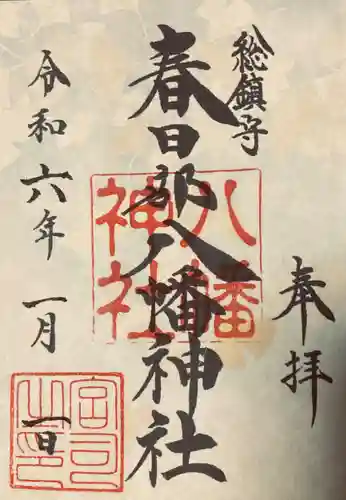 奉拝
総鎮守
春日部八幡神社
八幡神社
令和六年 一月 一日
宮司之印